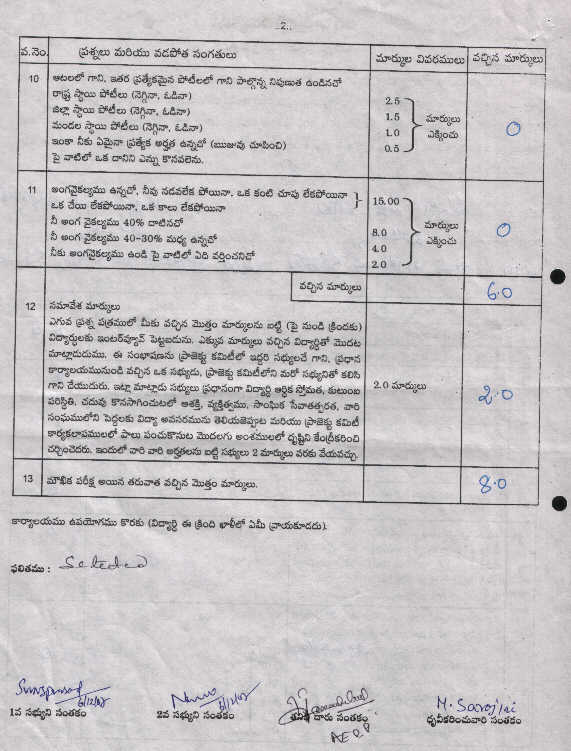 ..2..
వ.నెం. ప్రశ్నలు మరియు వడపోత సంగతులు మార్కుల వివరములు వచ్చిన మార్కులు
10 ఆటలలో గాని, ఇతర ప్రత్యేకమైన పోటీలలో గాని పాల్గొన్న నిపుణత ఉండినచో
రాష్ట్ర స్థాయి పోటీలు (నెగ్గినా, ఓడినా) 2.5
జిల్లా స్థాయి పోటీలు (నెగ్గినా, ఓడినా) 1.5 మార్కులు
మండల స్థాయి పోటీలు (నెగ్గినా, ఓడినా) 1.0 ఎక్కించు 0
ఇంకా నీకు ఏమైనా ప్రత్యేక అర్హత ఉన్నచో (ఋజువు చూపించి) 0.5
పై వాటిలో ఒక దానిని ఎన్ను కొనవలెను.
11 అంగవైకల్యము ఉన్నచో, నీవు నడవలేక పోయినా, ఒక కంటి చూపు లేకపోయినా
ఒక చేయి లేకపోయినా, ఒక కాలు లేకపోయినా 15.00
నీ అంగ వైకల్యము 40% దాటినచో మార్కులు
నీ అంగ వైకల్యము 40-30% మధ్య ఉన్నచో 8.0 ఎక్కించు 0
నీకు అంగవైకల్యము ఉండి పై వాటిలో ఏది వర్తించనిచో 4.0
2.0
వచ్చిన మార్కులు 6.0
12 సమావేశ మార్కులు
ఎగువ ప్రశ్న పత్రములో మీకు వచ్చిన మొత్తం మార్కులను బట్టి (పై నుండి క్రిందకు)
విద్యార్థులకు ఇంటర్వ్యూన్ పెట్టబడును. ఎక్కువ మార్కులు వచ్చిన విద్యార్థితో మొదట
మాట్లాడుదుము. ఈ సంభాషణను ప్రాజెక్టు కమిటీలో ఇద్దరి సభ్యులచే గాని, ప్రధాన
కార్యాలయమునుండి వచ్చిన ఒక సభ్యుడు, ప్రాజెక్టు కమిటీలోని మరో సభ్యునితో కలిసి
గాని చేయుదురు. ఇట్లా మాట్లాడు సభ్యులు ప్రధానంగా విద్యార్థి ఆర్థిక స్తోమత, కుటుంబ 2.0 మార్కులు
పరిస్థితి, చదువు కొనసాగించుటలో ఆశక్తి, వ్యక్తిత్వము, సాంఘిక సేవాతత్వరత, వారి 2.0
సంఘములోని పెద్దలకు విద్యా అవసరమును తెలియజెప్పుట మరియు ప్రాజెక్టు కమిటీ
కార్యకలాపములలో పాలు పంచుకొనుట మొదలగు అంశములలో దృష్టిని కేంద్రీకరించి
చర్చించెదరు. ఇందులో వారి వారి అర్హతలను బట్టి సభ్యులు 2 మార్కులు వరకు వేయవచ్చు.
13 మౌఖిక పరీక్ష అయిన తరువాత వచ్చిన మొత్తం మార్కులు. 8.0
కార్యాలయము ఉపయోగము కొరకు (విద్యార్థి ఈ క్రింది ఖాళీలో ఏమీ వ్రాయకూడదు).
ఫలితము :
6/12/08 6/12/08 M. Sarojini
1వ సభ్యుని సంతకం 2వ సభ్యుని సంతకం తనిఖీ దారు సంతకం ధృవీకరించువారి సంతకం